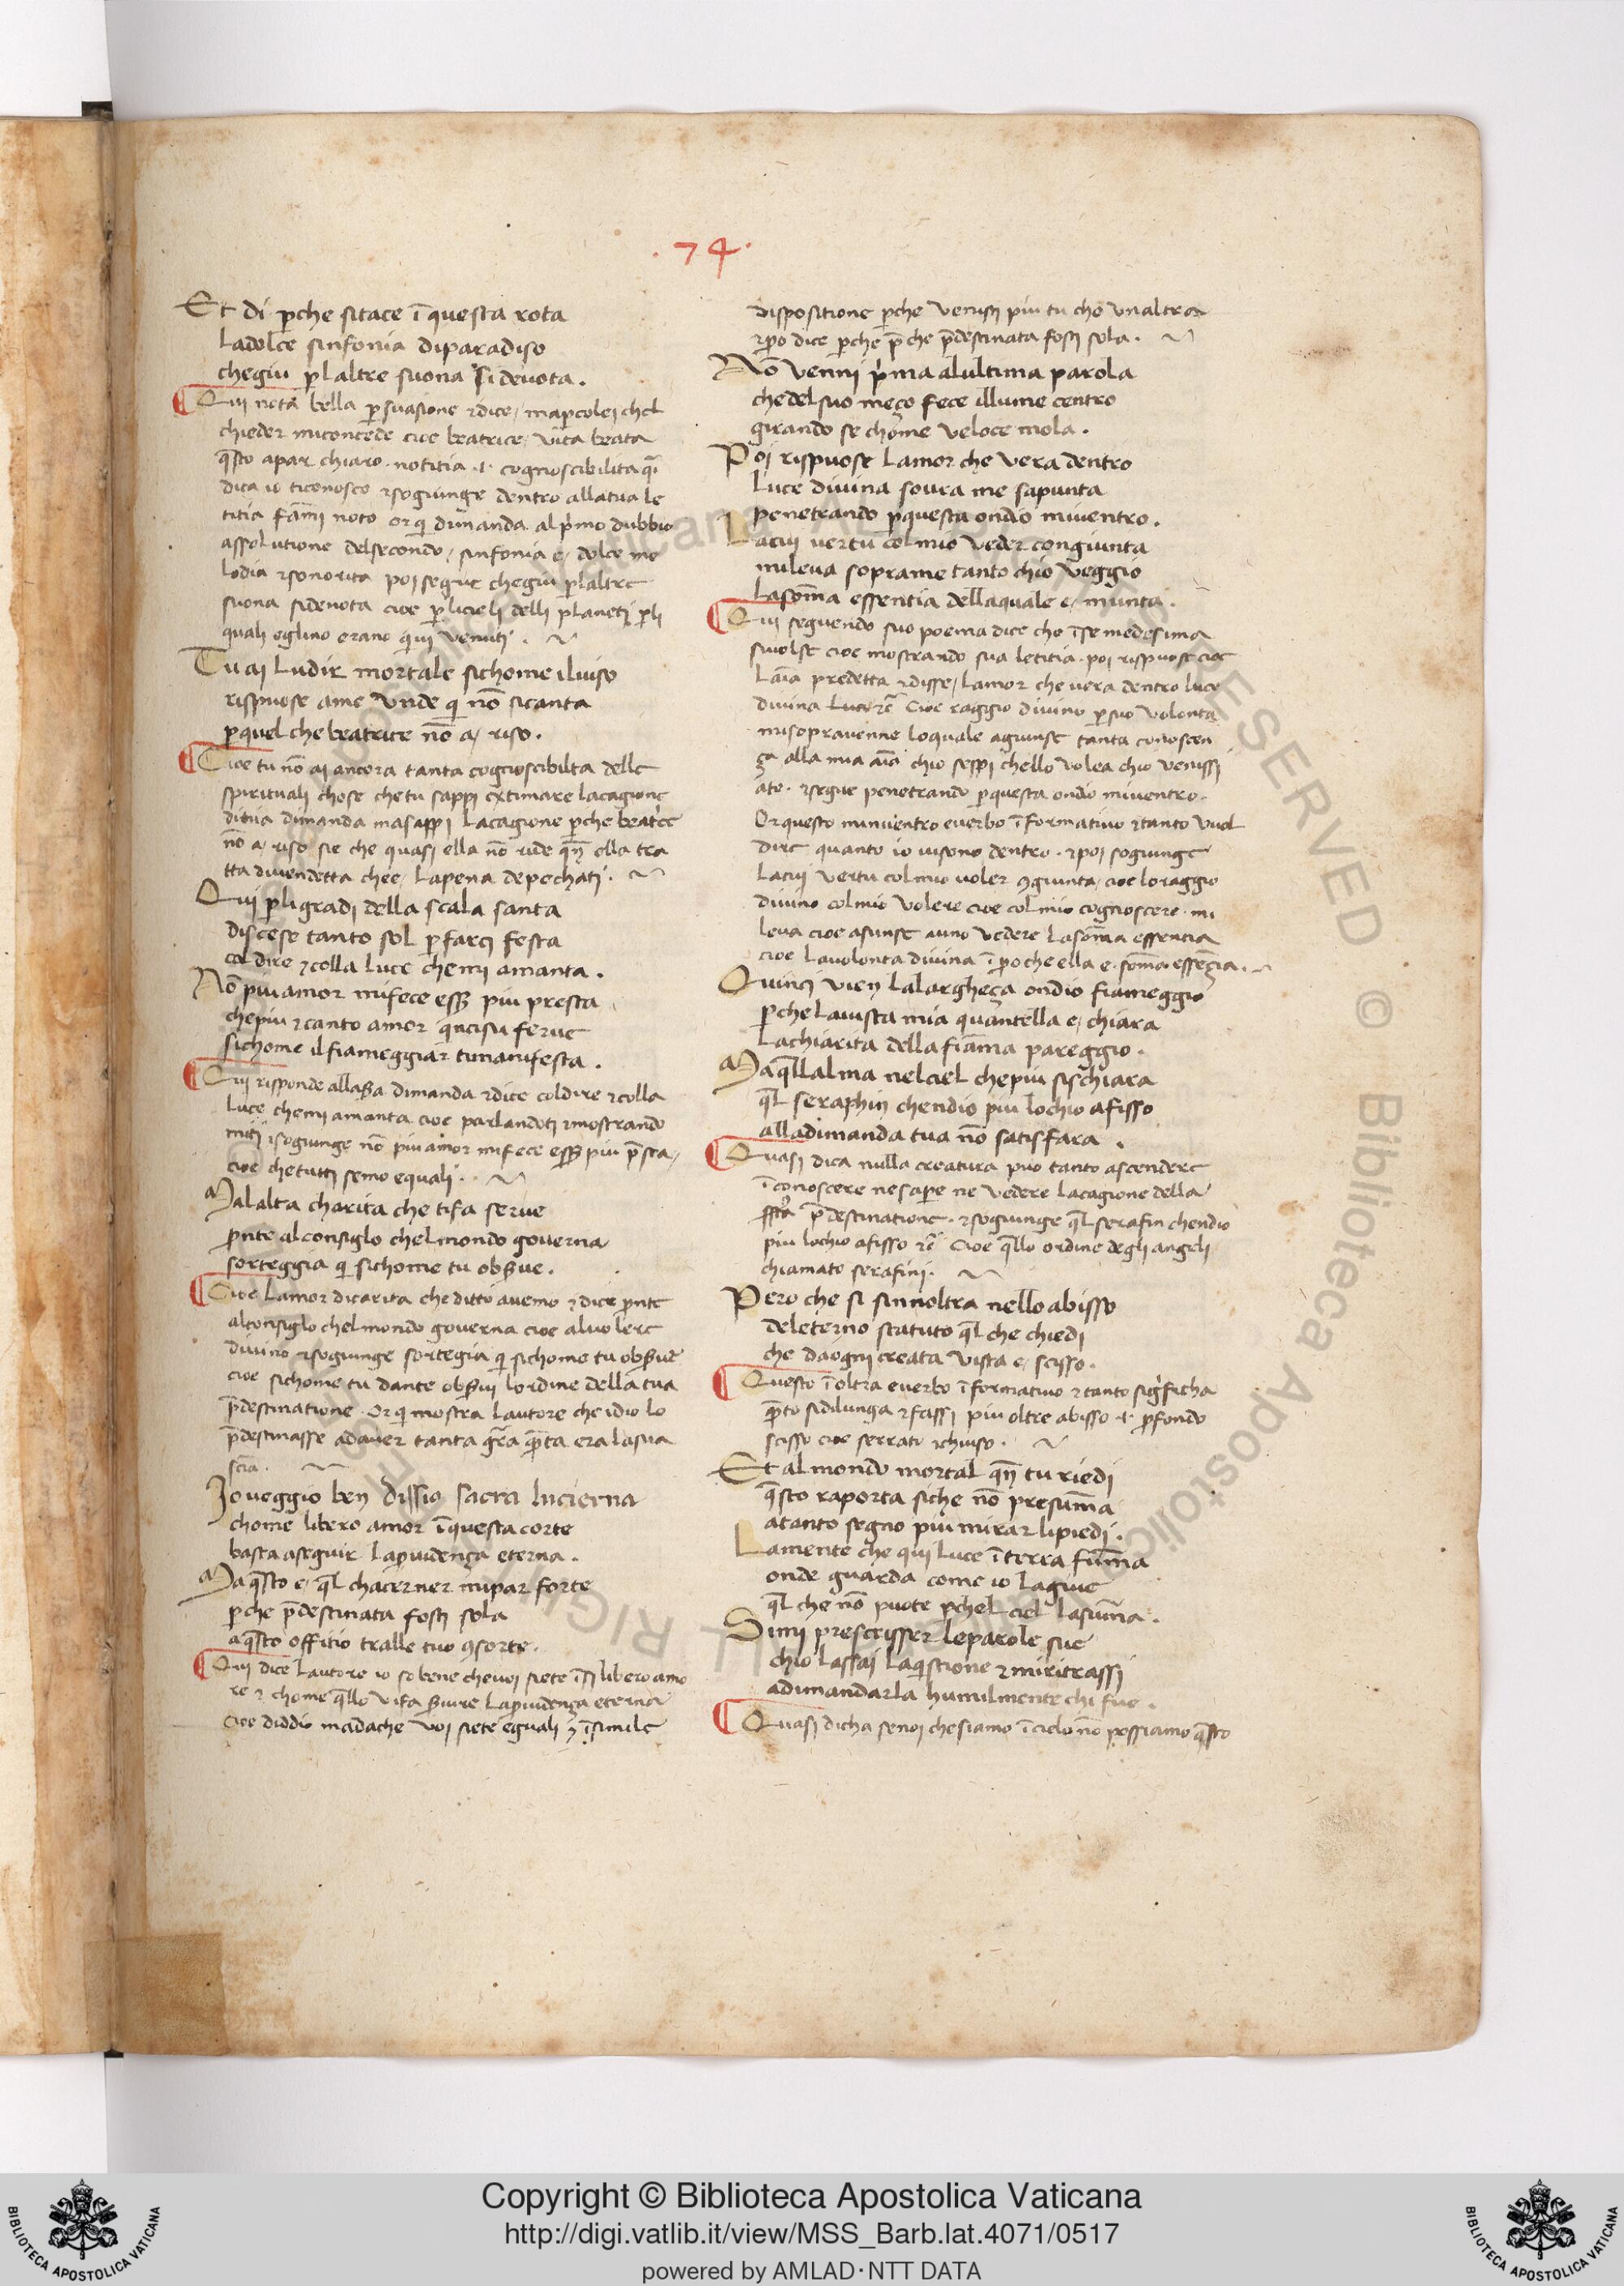 .74.
Et di p̱che sitace ī questa rota
ladolce sinfonia diparadiso
chegiu p̱ laltre suona si devota .
Qui nota bella p̱suasione ⁊dice / map̱colei chel
chieder miconcede cioe beatrice / vita beata
q̄sto apar chiaro . notitia .i. cognoscibilita q̄i
dica io ticonosco ⁊sogiunge dentro allatua le
titia fāmi noto or q̄ dimanda al p̄mo dubbio
assolutione delsecondo / sinfonia e / dolce me
lodia ⁊sonorita poi segue chegiu p̱laltre
suona sidevota cioe p̱licieli delli planeti p̱li
quali eglino erano q̄ui venuti .
Tu ai ludir mortale sichome iluiso
rispuose ame unde q̄ nō sicanta
p̱quel che beatrice nō a / riso .
Cioe tu nō ai ancora tanta cognoscibilta delle
spirituali chose chetu sappi extimare lacagione
ditua dimanda masappi lacagione p̱che beatrce
nō a / riso sie che quasi ella nō ride q̄n ella tra
tta divendetta chee / lapena depechati .
Qui p̱ligradi della scala santa
discese tanto sol p̱farti festa
col dire ⁊colla luce chemi amanta .
Nō piu amor mifece ess̱ piu presta
chepiu ⁊tanto amor q̄ncisu ferve
sichome ilfiameggiar timanifesta .
Qui risponde allass̱a dimanda ⁊dice coldire ⁊colla
luce chemi amanta cioe parlandoti ⁊mostrando
miti ⁊sogiunge nō piu amor mifece ess̱ piu p̄sta /
cioe chetutti semo equali .
Malalta charita che tifa serve
p̱nte alconsiglo chelmondo governa
sorteggia q̄ sichome tu obs̱ve .
Cioe lamor dicarita che ditto avemo ⁊dice p̱nte
alconsiglo chelmondo governa cioe alvolere
divino ⁊sogiunge sortegia q̄ sichome tu obs̱ve
cioe sichome tu dante obs̱vi lordine della tua
p̄destinatione . Or q̄ mostra lautore che idio lo
p̄destinasse adaver tanta grā q̄ta era lasua
scīa .
Io veggio ben dissio sacra lucierna
chome libero amor ī questa corte
basta aseguir lap̱videnҫa eterna .
Ma q̄sto e / q̄l chacerner mipar forte
p̱che p̄destinata fosti sola
aq̄sto offitio tralle tue ꝯsorte .
Qui dice lautore io so bene chevoi siete īsi libero amo
re ⁊ chome q̄llo vifa s̱vire lap̱videnҫa eterna
cioe diddio madache voi siete eguali ⁊ īsimile
dispositione p̱che venisti piu tu che unaltra
⁊p̱o dice p̱che p̄che p̄destinata fosti sola .
Nō venni p̄ma alultima parola
chedelsuo meҫo fece illume centro
girando se chome veloce mola .
Poi rispuose lamor che vera dentro
luce divina sovra me sapunta
penetrando p̱questa ondio miventro .
La cui vertu colmio veder congiunta
mileva soprame tanto chio veggio
lasōma essentia dellaquale e / munta .
Qui seguendo suo poema dice che īse medesima
sivolse cioe mostrando sua letitia . poi rispuose cioe
lāia predetta ⁊disse / lamor che vera dentro luce
divina luce ⁊c̄ cioe raggio divino p̱suo volonta
misopravenne loquale agiunse tanta conoscen
ҫa alla mia āia chio seppi chello volea chio venissi
ate . ⁊segue penetrando p̱questa ondio miventro .
Or questo minventro everbo īformativo ⁊tanto vuol
dire quanto io visono dentro . ⁊poi sogiunge
lacui vertu colmio voler ꝯgiunta / cioe loraggio
divino colmio volere cioe colmio cognoscere . mi
leva cioe asunse amo vedere lasōma essencia
cioe lavolonta divina īp̱oche ella e . sōma essēҫia .
Quinci vien lalargheҫa ondio fiameggio
p̱che lavista mia quantella e / chiara
lachiarita della fiāma pareggio .
Ma q̄llalma nelciel chepiu sischiara
q̄l seraphin chendio piu lochio afisso
alladimanda tua nō satisfara .
Quasi dica nulla creatura puo tanto ascendere
īconoscere ne sapere ne vedere lacagione della
p̄destinatione . ⁊sogiunge q̄l serafin chendio
piu lochio afisso ⁊c̄ cioe q̄llo ordine degli angeli
chiamato serafini .
Pero che si sinnoltra nello abisso
deleterno statuto q̄l che chiedi
che daogni creata vista e / scisso .
Questo īoltra everbo īformativo ⁊tanto sigīficha
q̄to sidilunga ⁊fassi piu oltre abisso .i. p̱fondo
scisso cioe serrato ⁊chiuso .
Et al mondo mortal q̄n tu riedi
q̄sto raporta siche nō presūma
atanto segno piu mirar lipiedi .
Lamente che qui luce īterra fūma
onde guarda come io lagiue
q̄l che nō puote p̱chel ciel lasūma .
Simi prescrisser leparole sue
chio lassai laq̄stione ⁊miritrassi
adimandarla humilmente chi fue .
Quasi dicha senoi chesiamo īcielo nō possiamo q̄sto
Copyright © Biblioteca Apostolica Vaticana
http://digi.vatlib.it/view/MSS_Barb.lat.4071/0517
powered by AMLAD·NTT DATA